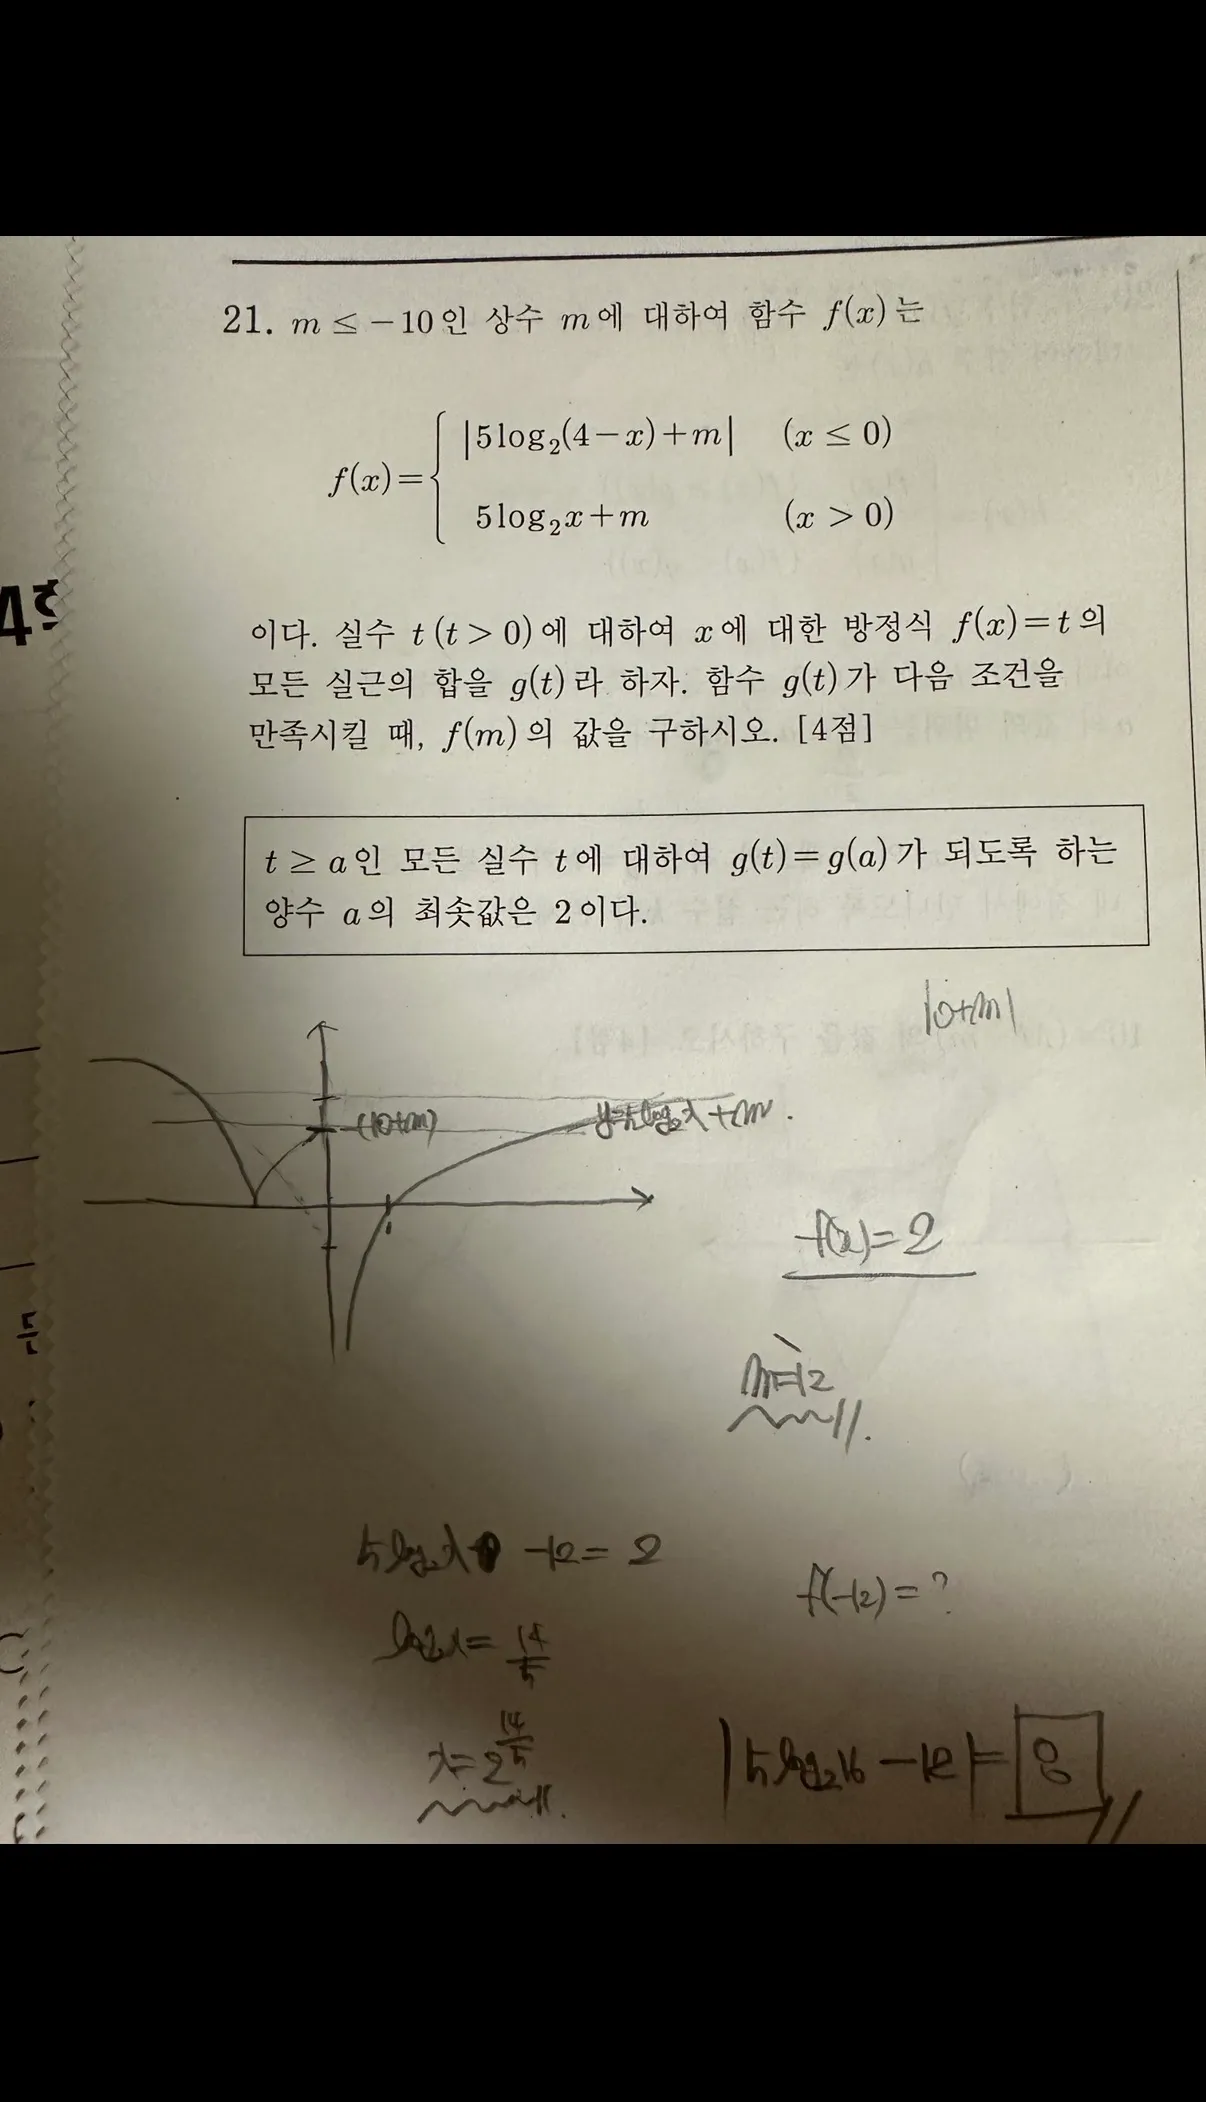 21. m ≤ -10인 상수 m에 대하여 함수 f(x)는
f(x)= { |5log₂(4-x)+m| (x ≤ 0)
5log₂x+m (x > 0)
이다. 실수 t(t > 0)에 대하여 x에 대한 방정식 f(x)=t의
모든 실근의 합을 g(t)라 하자. 함수 g(t)가 다음 조건을
만족시킬 때, f(m)의 값을 구하시오. [4점]
t ≥ a인 모든 실수 t에 대하여 g(t)=g(a)가 되도록 하는
양수 a의 최솟값은 2이다.
|10+m|
-(10+m)
y=5log₂x+m.
f(x)=2
m=-12
5log₂x -12= 2
f(-12)=?
log₂x= 14/5
x=2^(14/5)
|5log₂16 -12|= 8